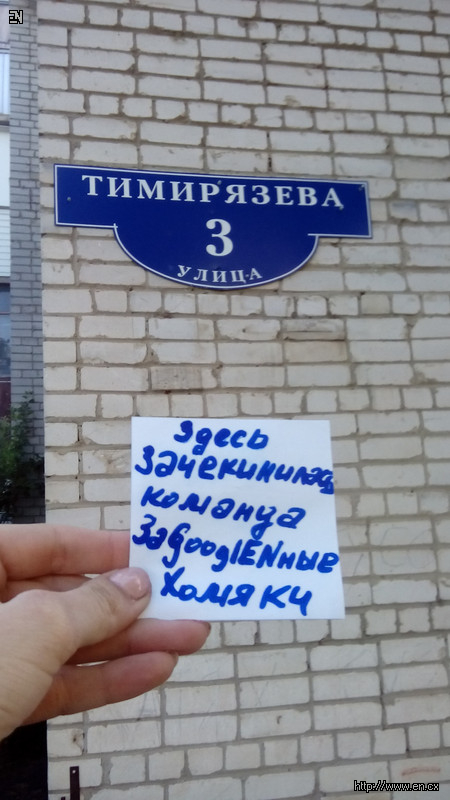 EN
ТИМИРЯЗЕВА
3
УЛИЦА
Здесь
Зачекинилась
команда
ЗаGooglENные
Хомяки
http://www.en.cx